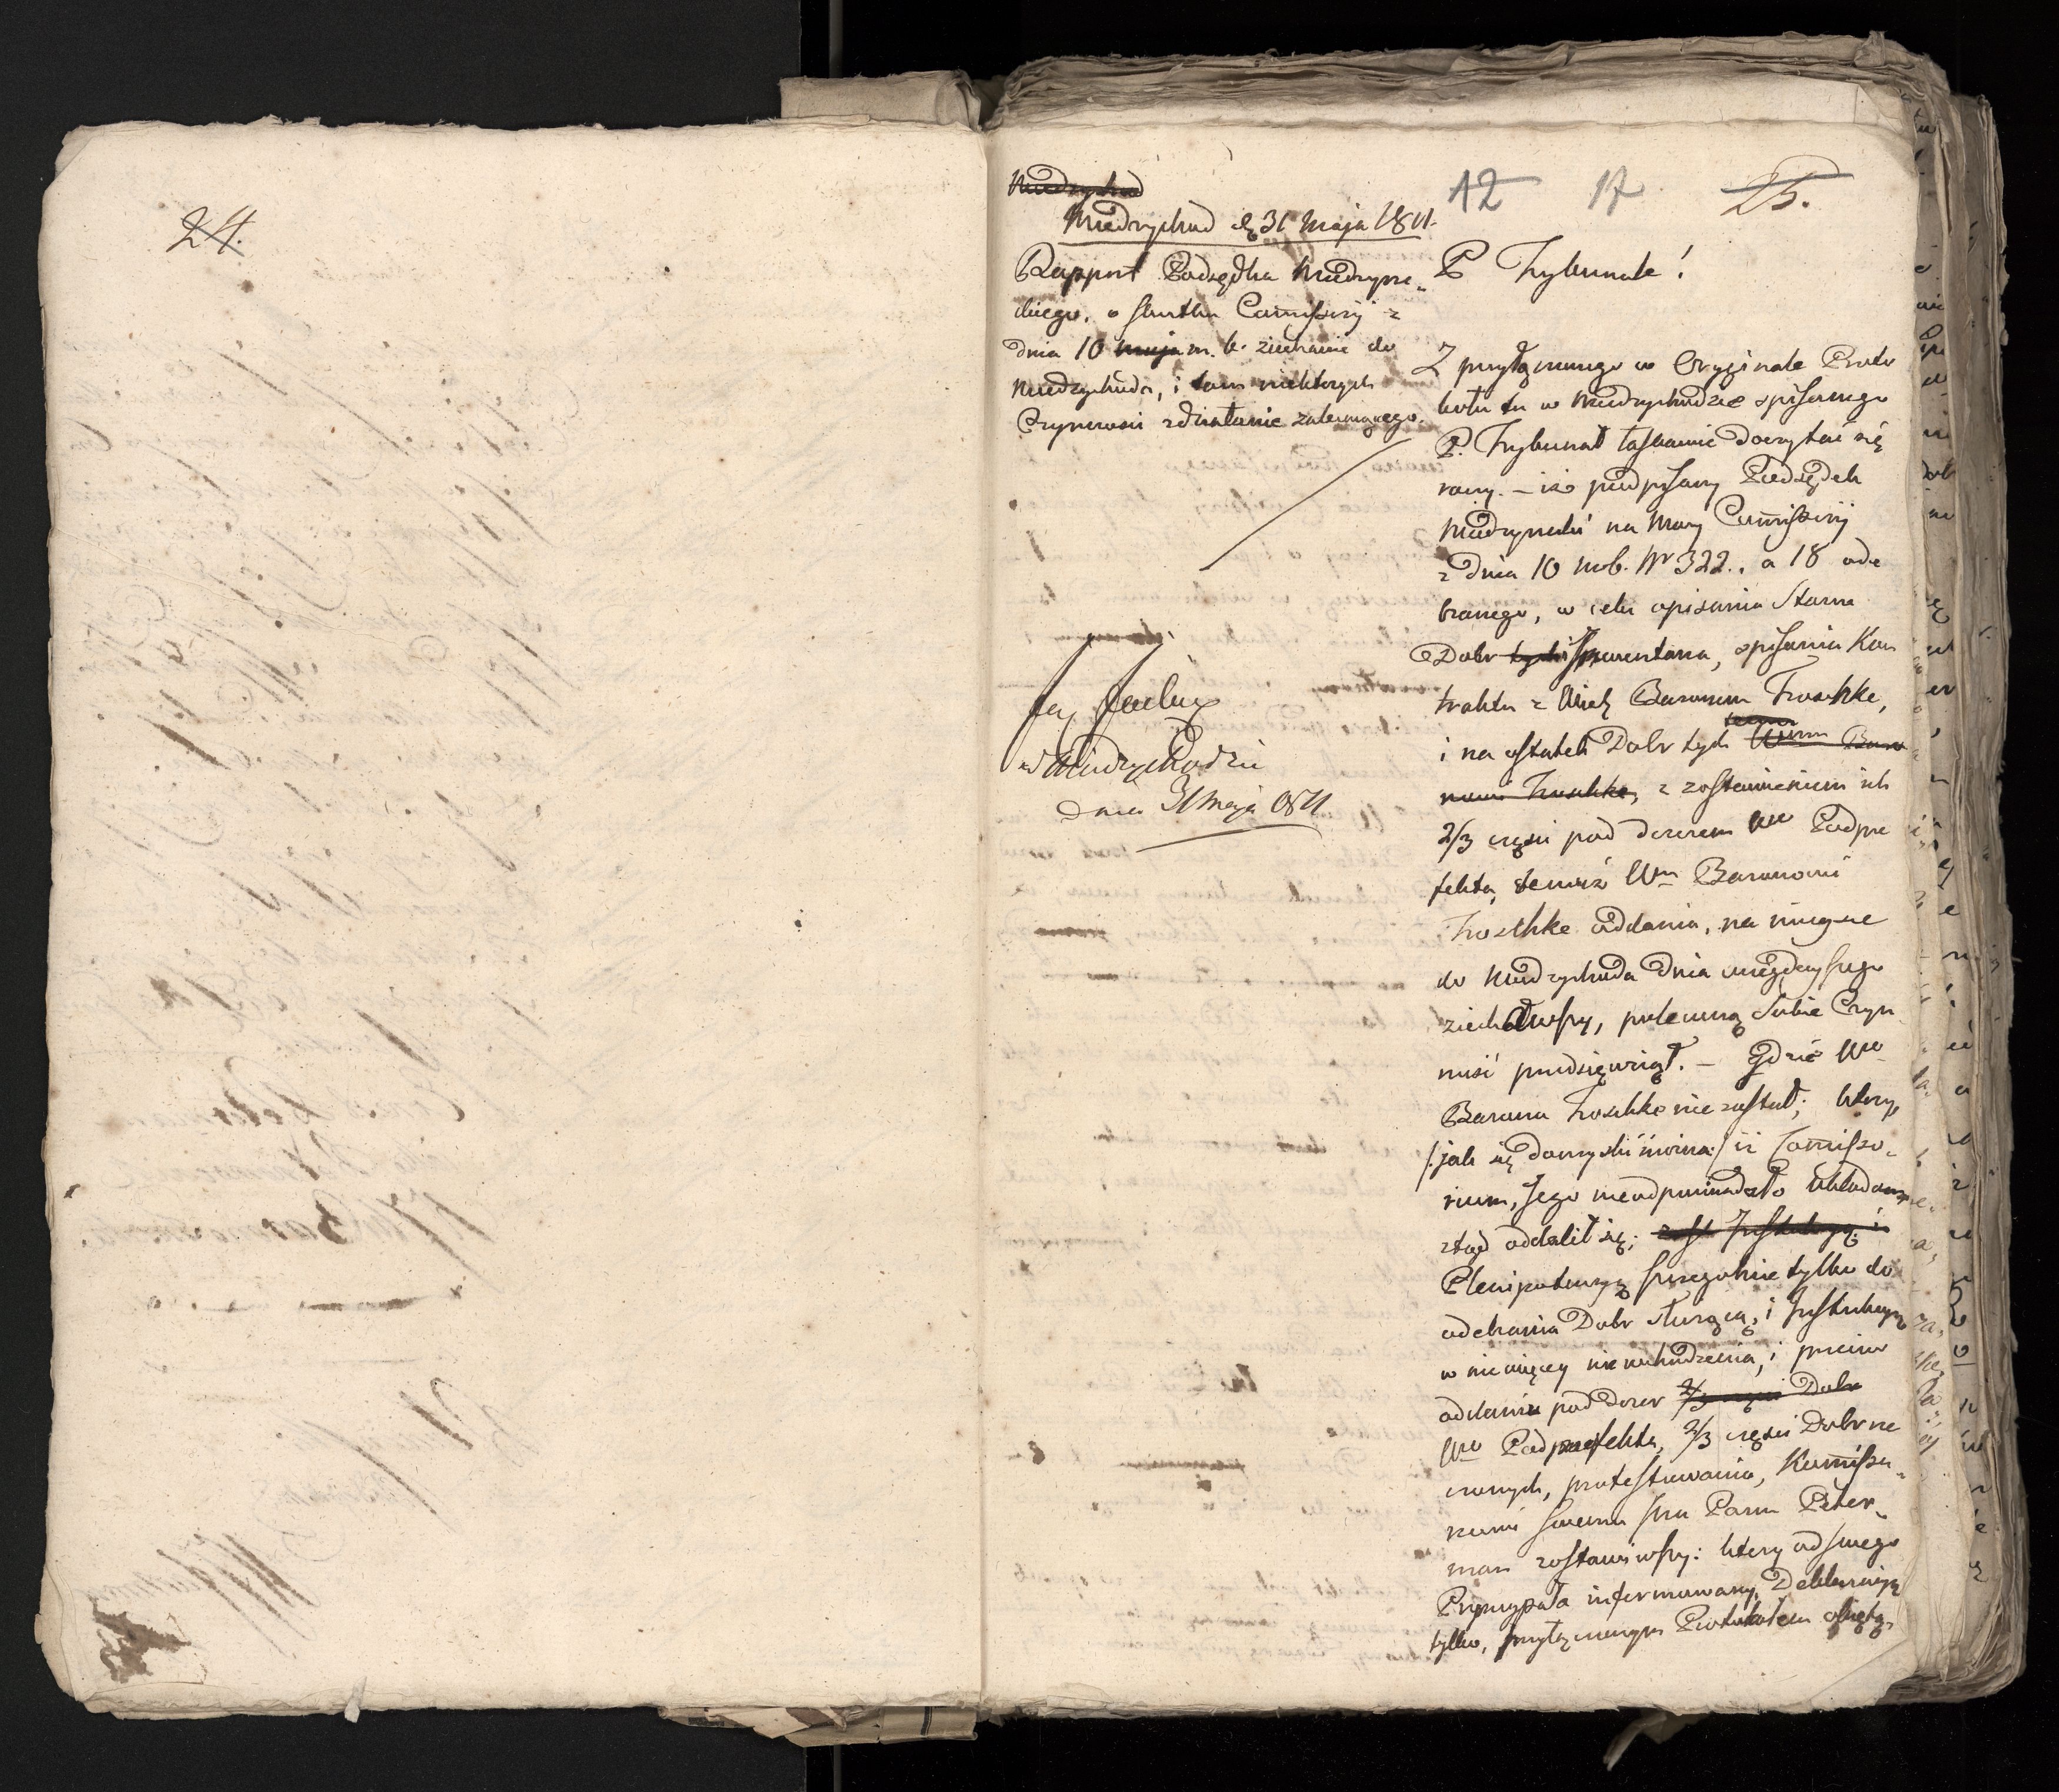 24.
Miedzychod
Miedzychod d. 31 Maja 1811.
12 17 25.
Rapport Podsędka Miedzyrze„
ckiego, o skutku Commissyij z
dnia 10 maja m. b. ziechanie do
Miedzychoda, i tam niektorych
Czynnosci zdziałanie zalecaiącego.
w Miedzychodzie
dnia 31 Maja 1811
P Trybunale!
Z przyłączonego w Oryginale Proto
kołu tu w Miedzychodzie spisanego
P. Trybunał łaskawie doczytać się
raczy. – iż podpisany Podsędek
Miedzyrzecki na Mocy Commissyij
z dnia 10 m. b. Nr 322., a 18 ode
branego, w celu opisania Stanu
Dobr tychże Inwentarza, spisania Kon
traktu z Wielm. Baronem Troschke,
i na ostatek Dobr tych Wmu Baro
nowi Troschke, z zostawieniem ich
2/3 części pod dozorem WW Podpre
fekta, temuż Wmu Baronowi
Troschke oddania, na mieysce
do Miedzychoda dnia wczorayszego
ziechawszy, poleconą sobie Czyn
ność przedsięwziął. – gdzie WW
Barona Troschke nie zastał; ktory,
/: jak się domyślić można :/ iż Commisso„
rium, Jego nie odpowiadało układom,
ztąd oddalił się; zost Substytucyą i
Plenipotencyą szczegolnie tylko do
odebrania Dobr służącą, i Substytucyą
w nic więcey nie wchodzenia, i przeciw
oddaniu pod dozor 2/3 części Dobr
WW Podprefekta, 2/3 części Dobr rze
czonych, protestowania, Kommissa„
rzowi swemu Panu Peter„
man zostawiwszy: ktory od swego
Pryncypała informowany, Deklaracyą
tylko, przyłączonym Protokołem objętą,